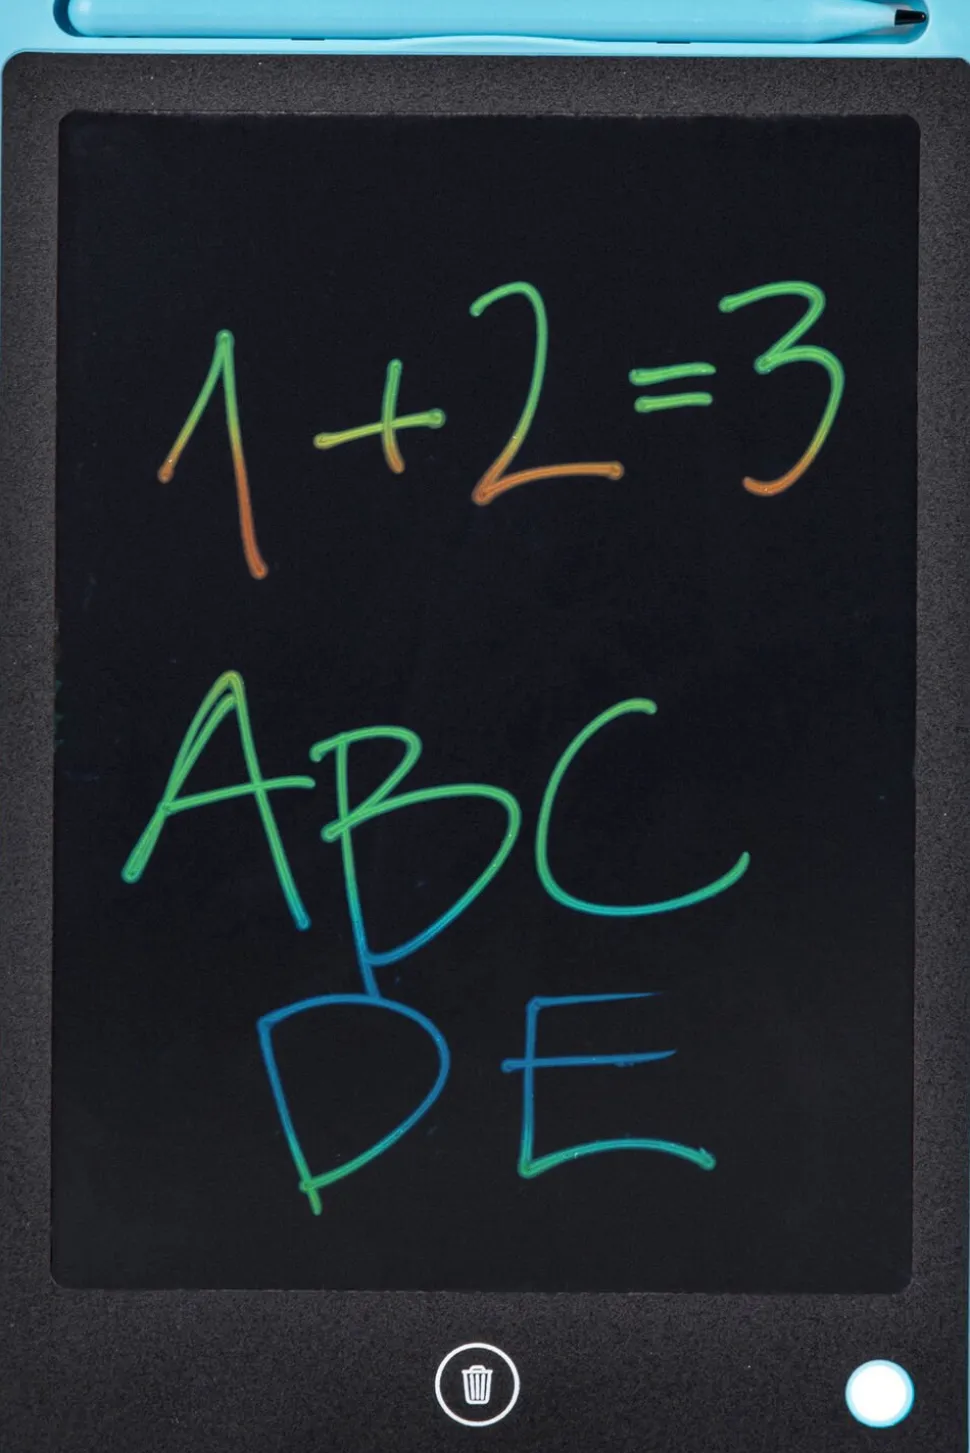 1+2=3
ABC
DE